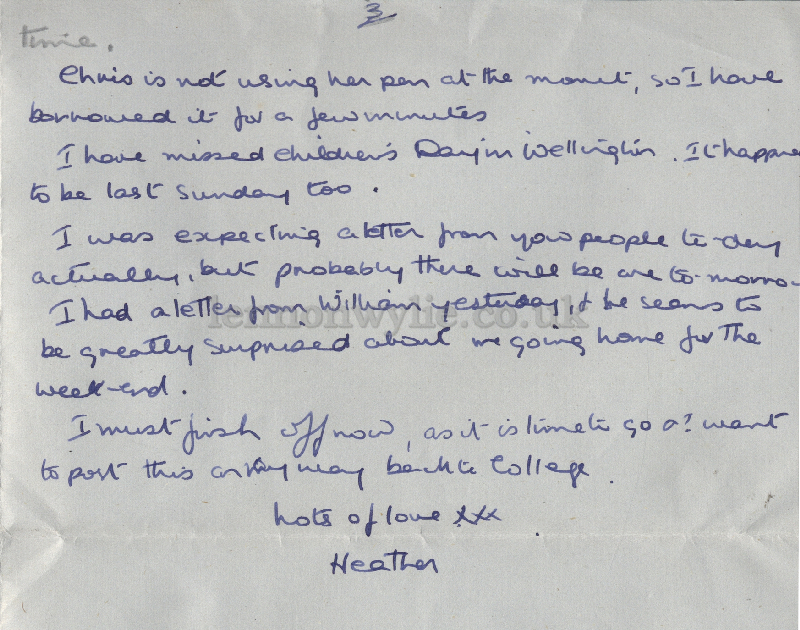 3
time.
Chris is not using her pen at the momt, so I have
borrowed it for a few minutes
I have missed Children's Day in Wellington. It happene
to be last Sunday too.
I was expecting a letter from you people to-day
actually, but probably there will be one to-morro-
I had a letter from William yesterday, & he seems to
lennonwylie.co.uk
be greatly surprised about me going home for the
week-end.
I must finish off now, as it is time to go & I want
to post this on my way back to College.
Lots of love xxx
Heather